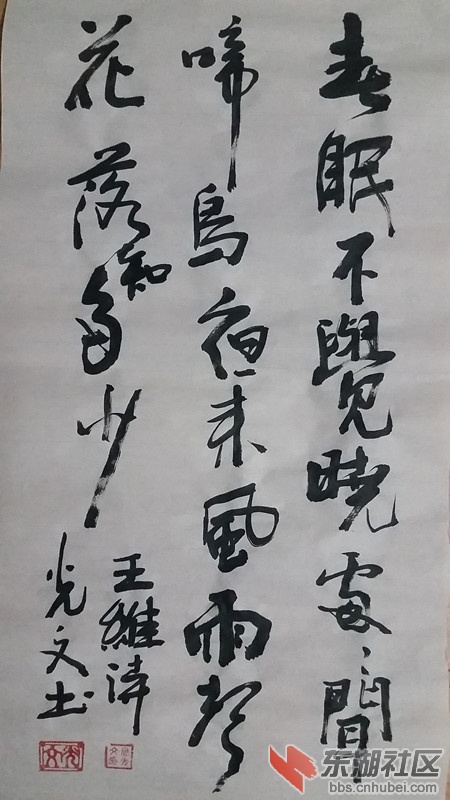 春眠不覺曉處々聞
啼鳥夜来風雨聲
花落知多少
王維詩
光文书
东湖社区
bbs.cnhubei.com